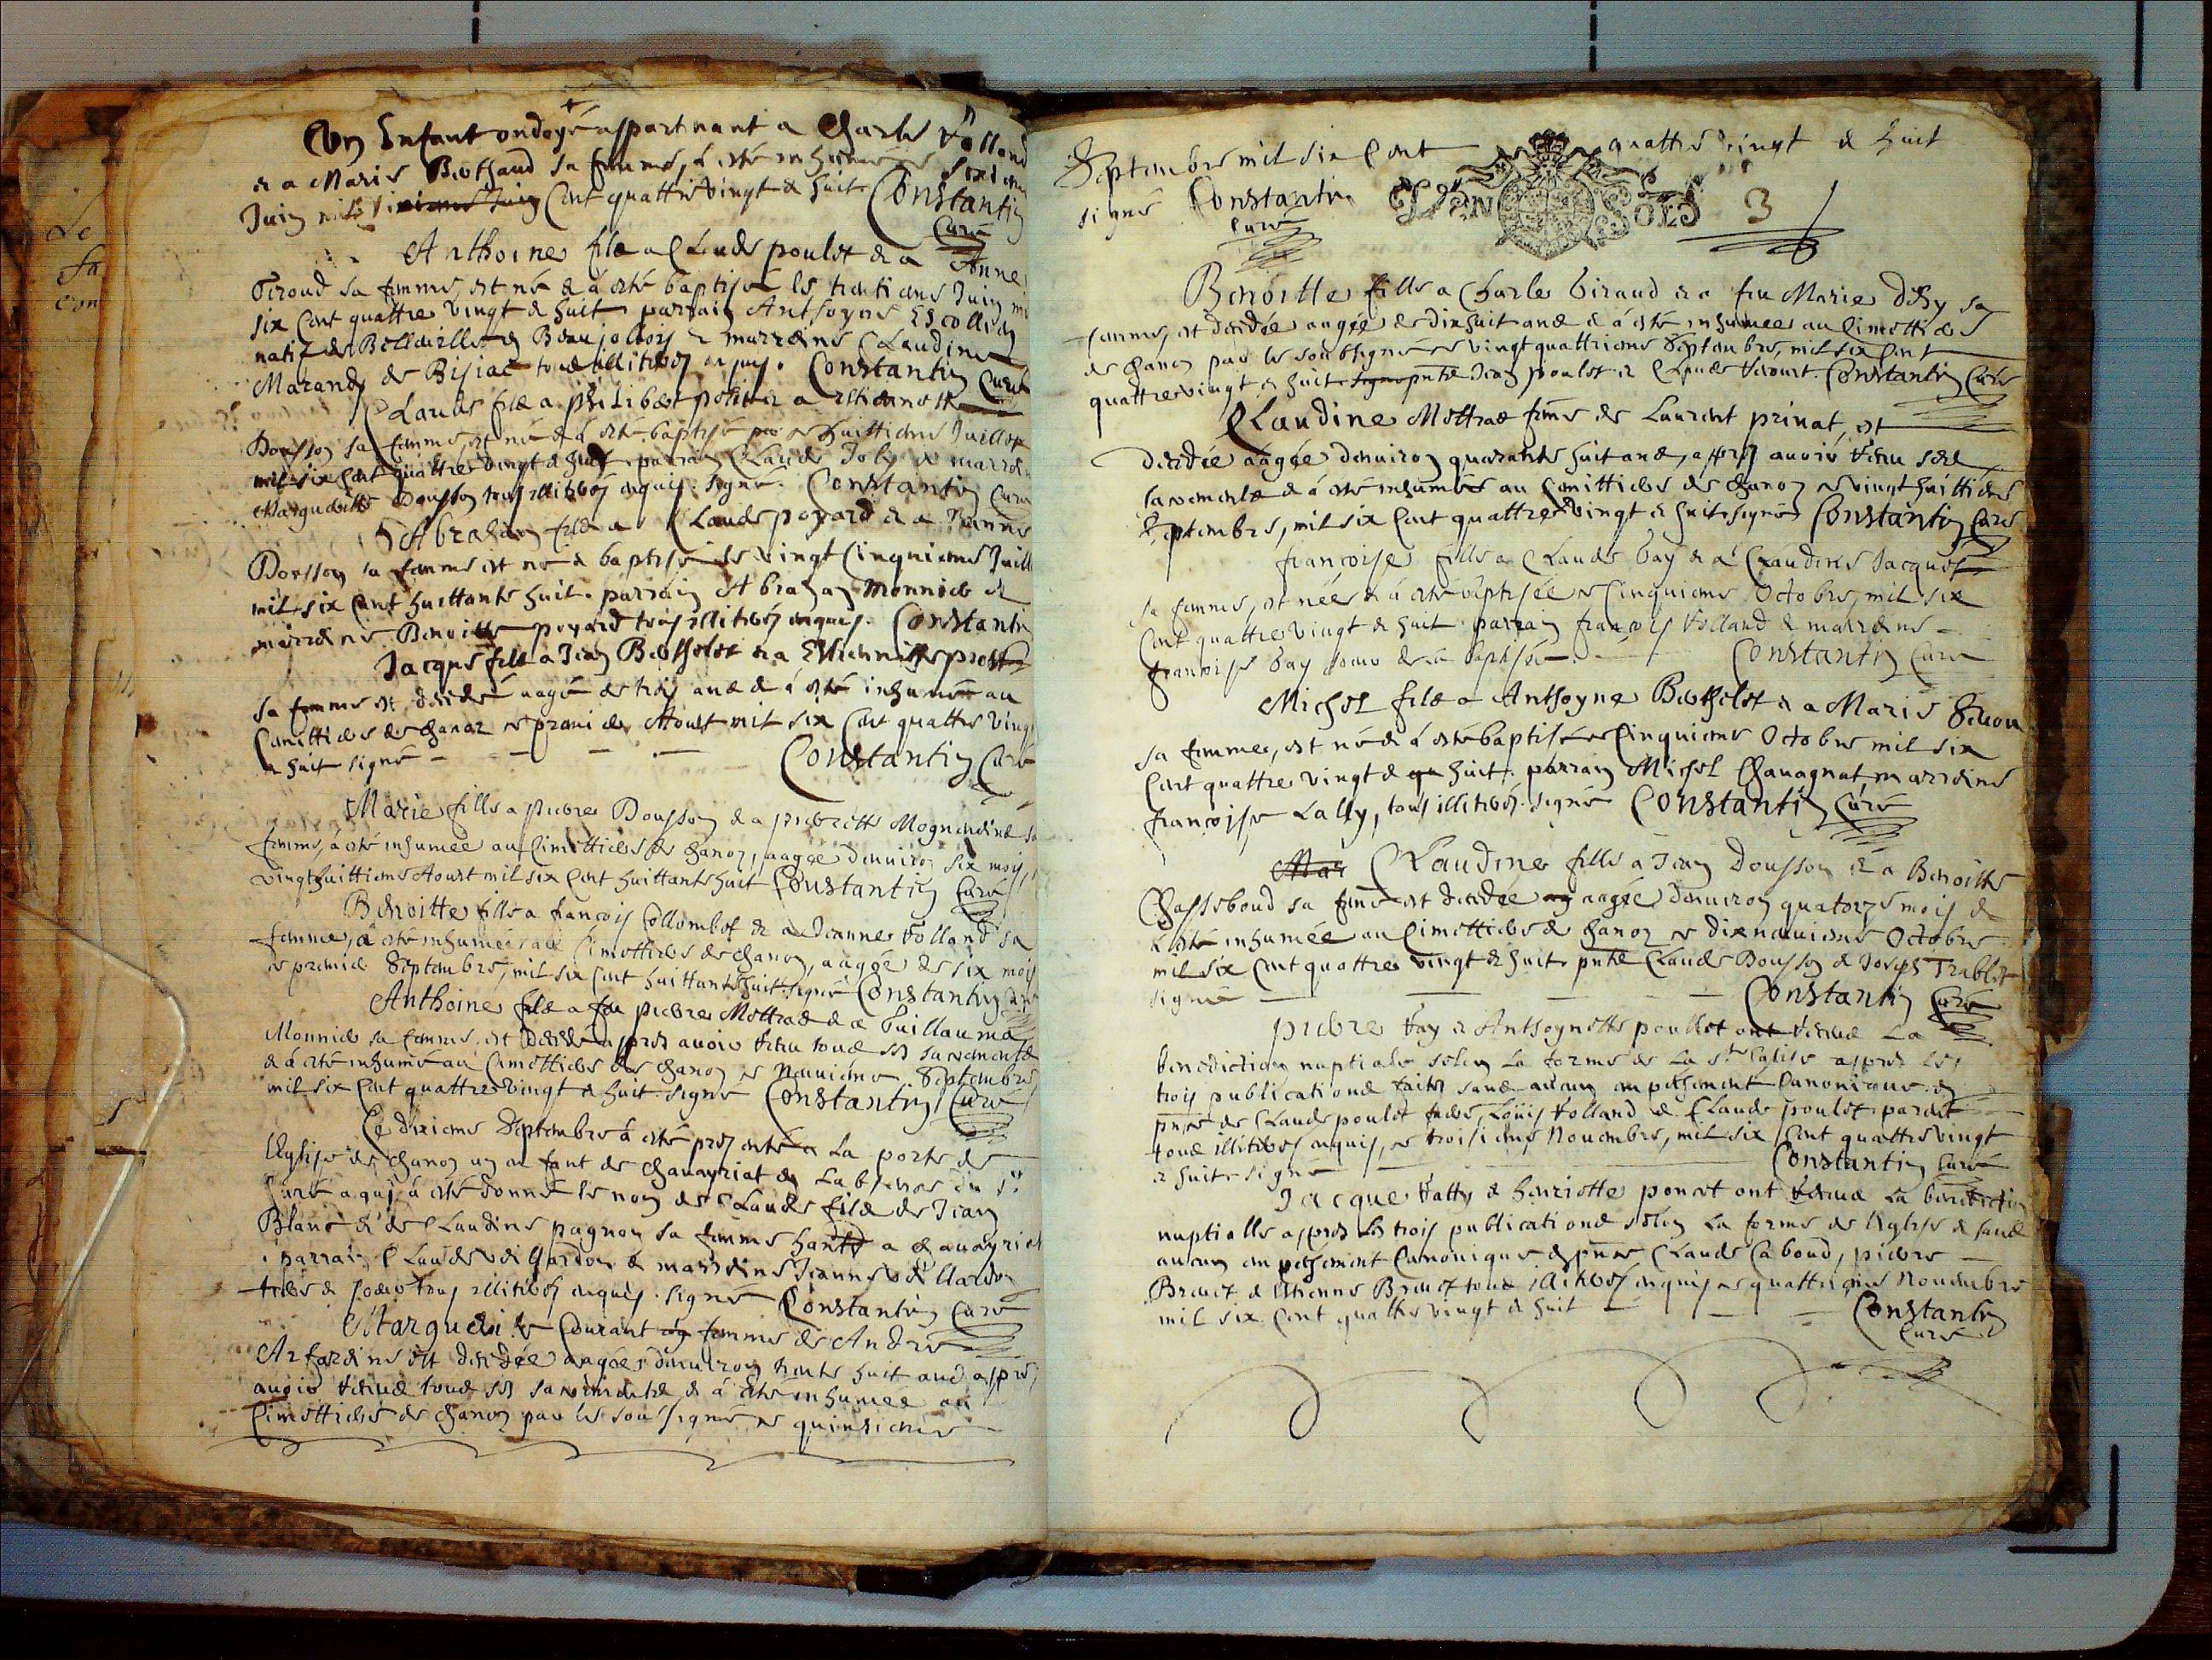 Un Enfant ondoyé appartenant a Charle Volland
et a Marie Berthaud sa femme, a esté inhumé ce sixieme
Juin mil six cent quattre vingt et huit Constantin
Curé
Anthoine filz a Claude poulet et a Anne
Giroud sa femme, est né et à esté baptisé le trentieme Juin mil
six cent quattre vingt et huit parrain Anthoyne
natif de Belleville en Beaujollois et marreine Claudine
Marandy de Bisiac tous illiterés enquis. Constantin Curé
Claude filz a philibert petit et a
Dousson sa femme, est né et à esté baptisé ce huittieme Juillet
mil six cent quattre vingt et huit parrain Claude Joly et marreine
Margueritte Dousson tous illiterés enquis. signé. Constantin Curé
Abraham filz a Claude poyard et a Jeanne
Dousson sa femme est né et baptisé le vingt cinquieme Juillet
mil six cent huittante huit. parrain Abraham Monnier et
marreine Benoitte poyard tous illiterés enquis. Constantin
Jacque filz a Jean Berthelet et a Estiennette
sa femme est decedé aagé de trois ans et à esté inhumé au
Cimettiere de Chanoz ce premier Aoust mil six cent quattre vingt
et huit signé - - - - Constantin Curé
Marie fille a pierre Dousson et a pierrette
femme, à esté inhumée au Cimettiere de Chanoz, aagée denuiron six mois
vingt huittieme Aoust mil six cent huittante huit Constantin Curé
Benoitte fille a francois Collombet et a Jeanne Volland sa
femme, à esté inhumée au Cimettiere de Chanoz, aagée de six mois
ce premier Septembre, mil six cent huittante huit. signé Constantin Curé
Anthoine filz a feu pierre Mettraz et a Guillauma
Monnier sa femme, est decedé appres auoir receu tous ses sacrementz
et à esté inhumé au Cimettiere de Chanoz ce neuuieme Septembre,
mil six cent quattre vingt et huit. signé Constantin Curé
Ce dixieme Septembre à esté presenté a La porte de
L'Eglise de Chanoz un enfant de Chaueyriat en
Curé a qui à esté donné le nom de Claude filz de Jean
Blanc et de Claudine pagnon sa femme
parrain Claude et marreine Jeanne
frere et soeur tous illiterés enquis. signé Constantin Curé
Marguerite Courant femme de André
est decedée aagée denuiron trente huit ans appres
auoir receue tous ses sacrementz et à esté inhumée au
Cimettiere de Chanoz par le soussigné ce quinzieme
Septembre mil six Cent quattre vingt et huit
signé Constantin
Curé
SOLS 3
Benoitte fille a Charle Giraud et a feu Marie sa
femme, est decedée aagée de dixhuit ans et à esté inhumée au Cimettiere
de Chanoz par le soubsigné ce vingt quattrieme Septembre, mil six Cent
quattre vingt et huit pnte Jean poulet et Claude Constantin Curé
Claudine Mettraz feme de Laurent priuat, est
decedée aagée denuiron quarante huit ans, appres auoir receu ses
sacrementz et à esté inhumée au Cimittiere de Chanoz ce vingt huittieme
Septembre, mil six Cent quattre vingt et huit. signé Constantin Curé
françoise fille a Claude Vay et a Claudine Jacquet
sa femme, est née et à esté baptisée ce Cinquieme Octobre, mil six
Cent quattre vingt et huit parrain françois Volland et marreine -
françoise Vay soeur de la baptisée. - Constantin Curé
Michel filz a Anthoyne Berthelet et a Marie
sa femme, est né et à esté baptisé ce Cinquieme Octobre mil six
Cent quattre vingt et huit. parrain Michel Chauagnat marreine
françoise Lally, tous illiterés. signé Constantin Curé
Claudine fille a Jean Dousson et a Benoitte
Chasseboud sa feme est decedée aagée denuiron quatorze mois et
a esté inhumée au Cimettiere de Chanoz ce dixneuuieme Octobre
mil six Cent quattre vingt et huit. pnte Claude Dousson et Joseph
signé - - - - Constantin Curé
pierre Vay et Anthoynette poullet ont receue La
benediction nuptiale selon La forme de La Ste Eglise appres les
trois publications faites sans aucun empechement Canonique en
pnce de Claude poulet Louis Volland et Claude poulet
tous illiterés enquis, ce troisieme Nouembre, mil six Cent quattre vingt
et huit. signé - Constantin Curé
Jacque Vatty et henriette poncet ont receue La benediction
nuptialle appres Les trois publications selon La forme de l'eglise et sans
aucun empechement Canonique en pnce Claude Caboud, pierre -
Breuet et Etienne Breuet tous illiterés enquis ce quattrieme Nouembre
mil six Cent quattre vingt et huit - - - Constantin
Curé